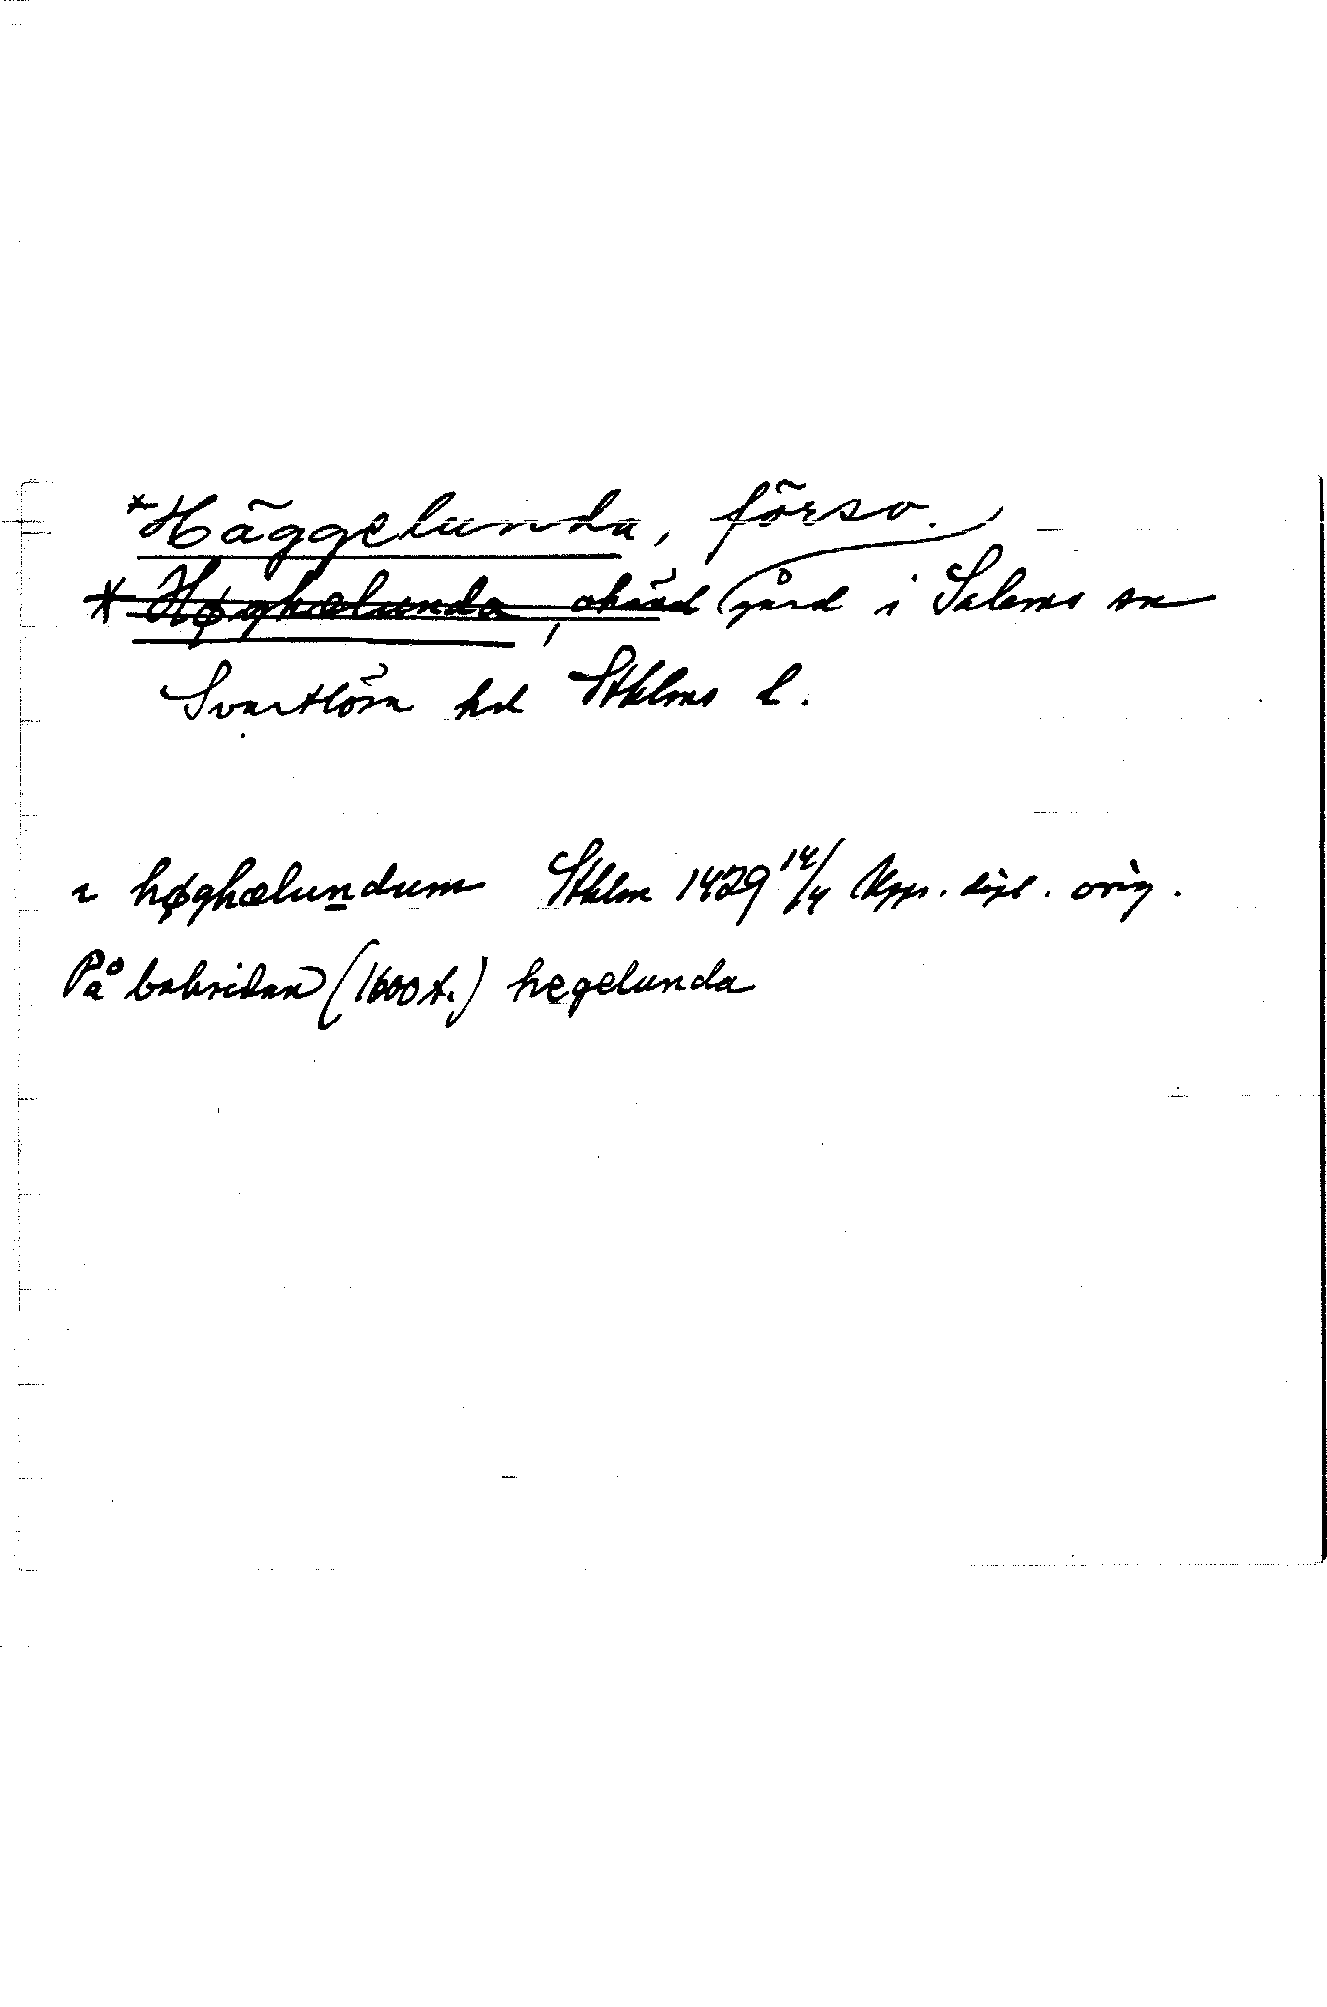 *Häggelunda, försv.
* Høghælunda, okänd gård i Salems sn
Svartlösa hd Sthlms l.
i høghælundum Sthlm 1429 14/4 Upps. dipl. orig.
På baksidan (1600 t.) hegelunda